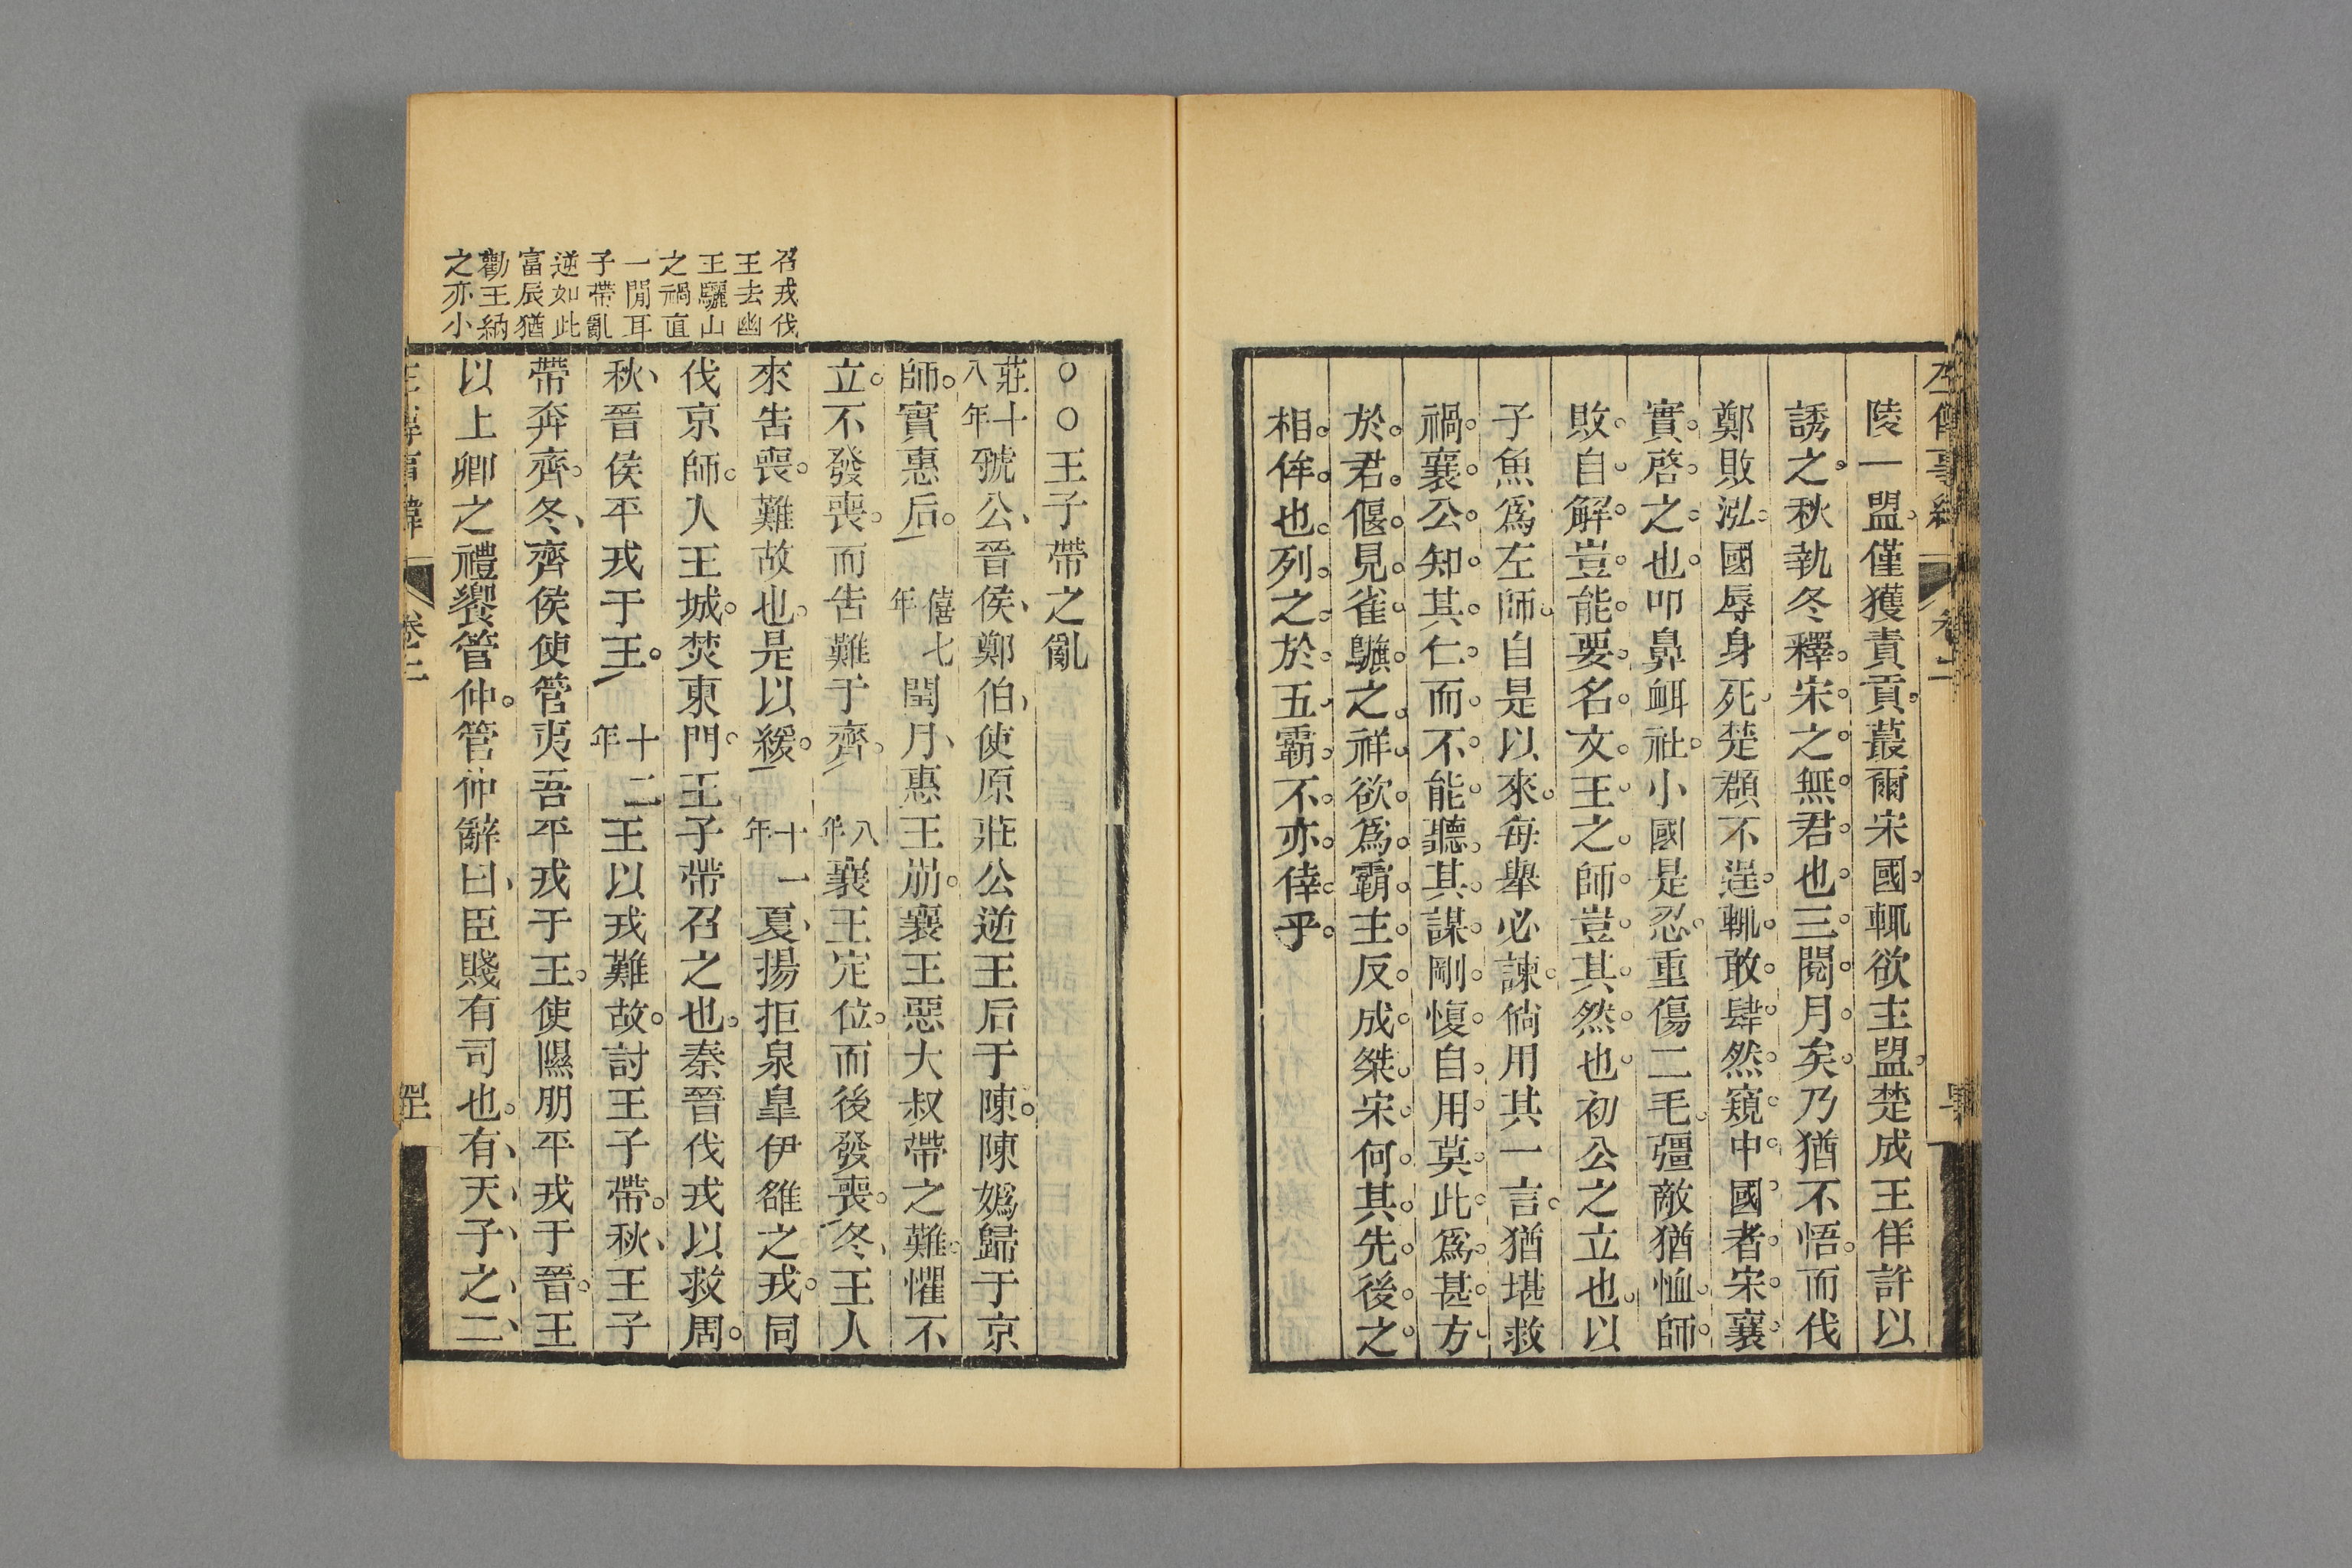 陵一盟僅獲責貢蕞爾宋國輒欲主盟楚成王佯許以
誘之秋執冬釋宋之無君也三閱月矣乃猶不悟而伐
鄭敗泓國辱身死楚頵不逞輒敢肆然窺中國者宋襄
實啓之也叩鼻衈社小國是忍重傷二毛彊敵猶恤師
敗自解豈能要名文王之師豈其然也初公之立也以
子魚爲左師自是以來每舉必諫倘用其一言猶堪救
禍襄公知其仁而不能聽其謀剛愎自用莫此爲甚方
於君偃見雀鸇之祥欲爲霸主反成桀宋何其先後之
相侔也列之於五霸不亦倖乎
○○王子帶之亂
莊十八年虢公晉侯鄭伯使原莊公逆王后于陳陳嬀歸于京
師實惠后僖七年閏月惠王崩襄王惡大叔帶之難懼不
立不發喪而告難于齊八年襄王定位而後發喪冬王人
來告喪難故也是以緩十一年夏揚拒泉皐伊雒之戎同
伐京師入王城焚東門王子帶召之也秦晉伐戎以救周
秋晉侯平戎于王十二年王以戎難故討王子帶秋王子
帶奔齊冬齊侯使管夷吾平戎于王使隰朋平戎于晉王
以上卿之禮饗管仲管仲辭曰臣賤有司也有天子之二
召戎伐
王去幽
王驪山
之禍直
一閒耳
子帶亂
逆如此
富辰猶
勸王納
之亦小
左傳事緯
卷二